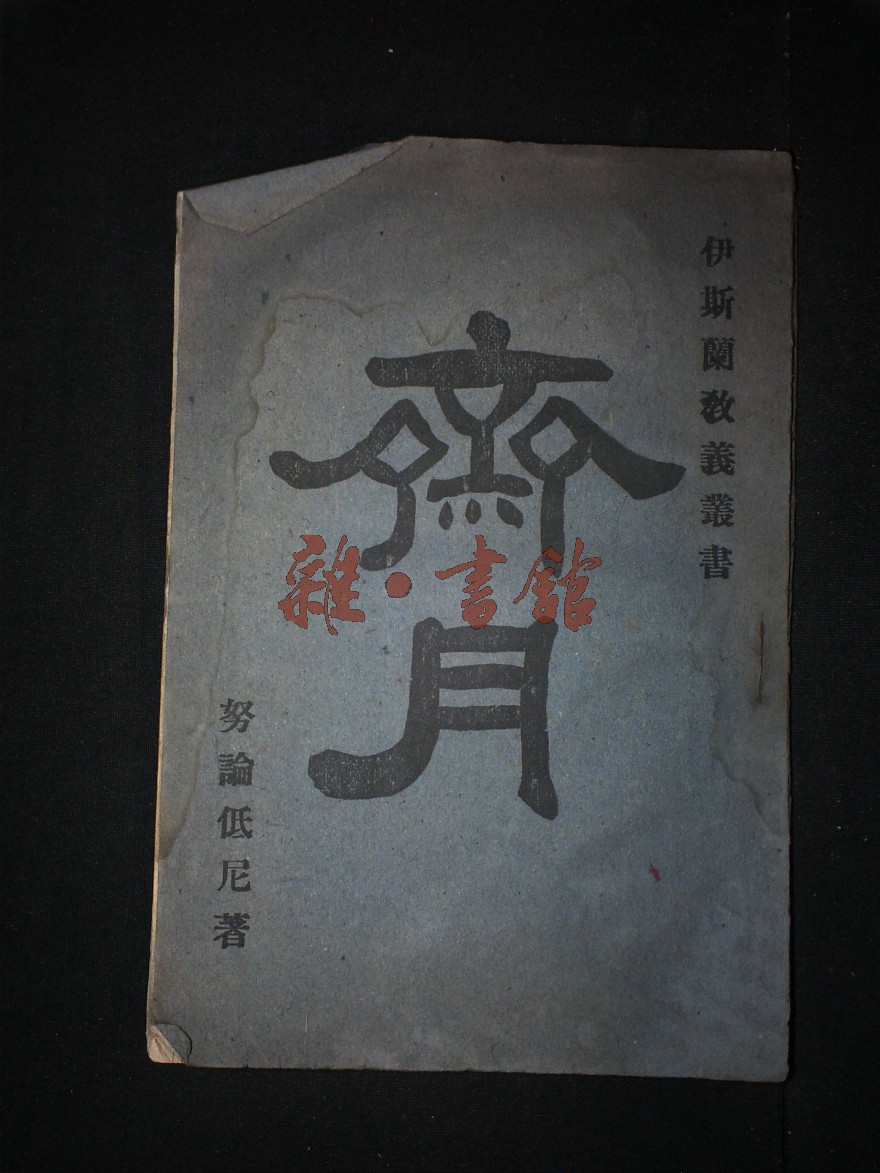 伊斯蘭教義叢書
齋月
努論低尼著
雜·書館